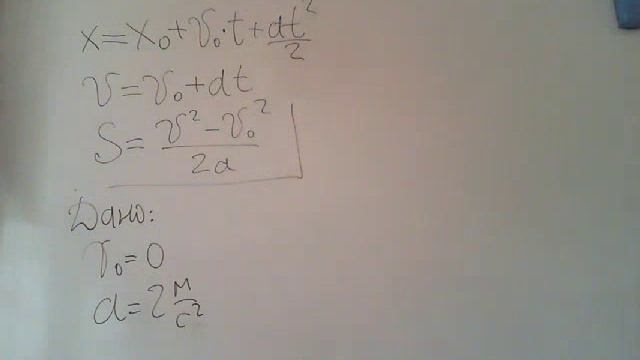 x = x₀ + v₀·t + at²/2
v = v₀ + at
S = (v² − v₀²)/2a
Дано:
v₀ = 0
a = 2 м/с²